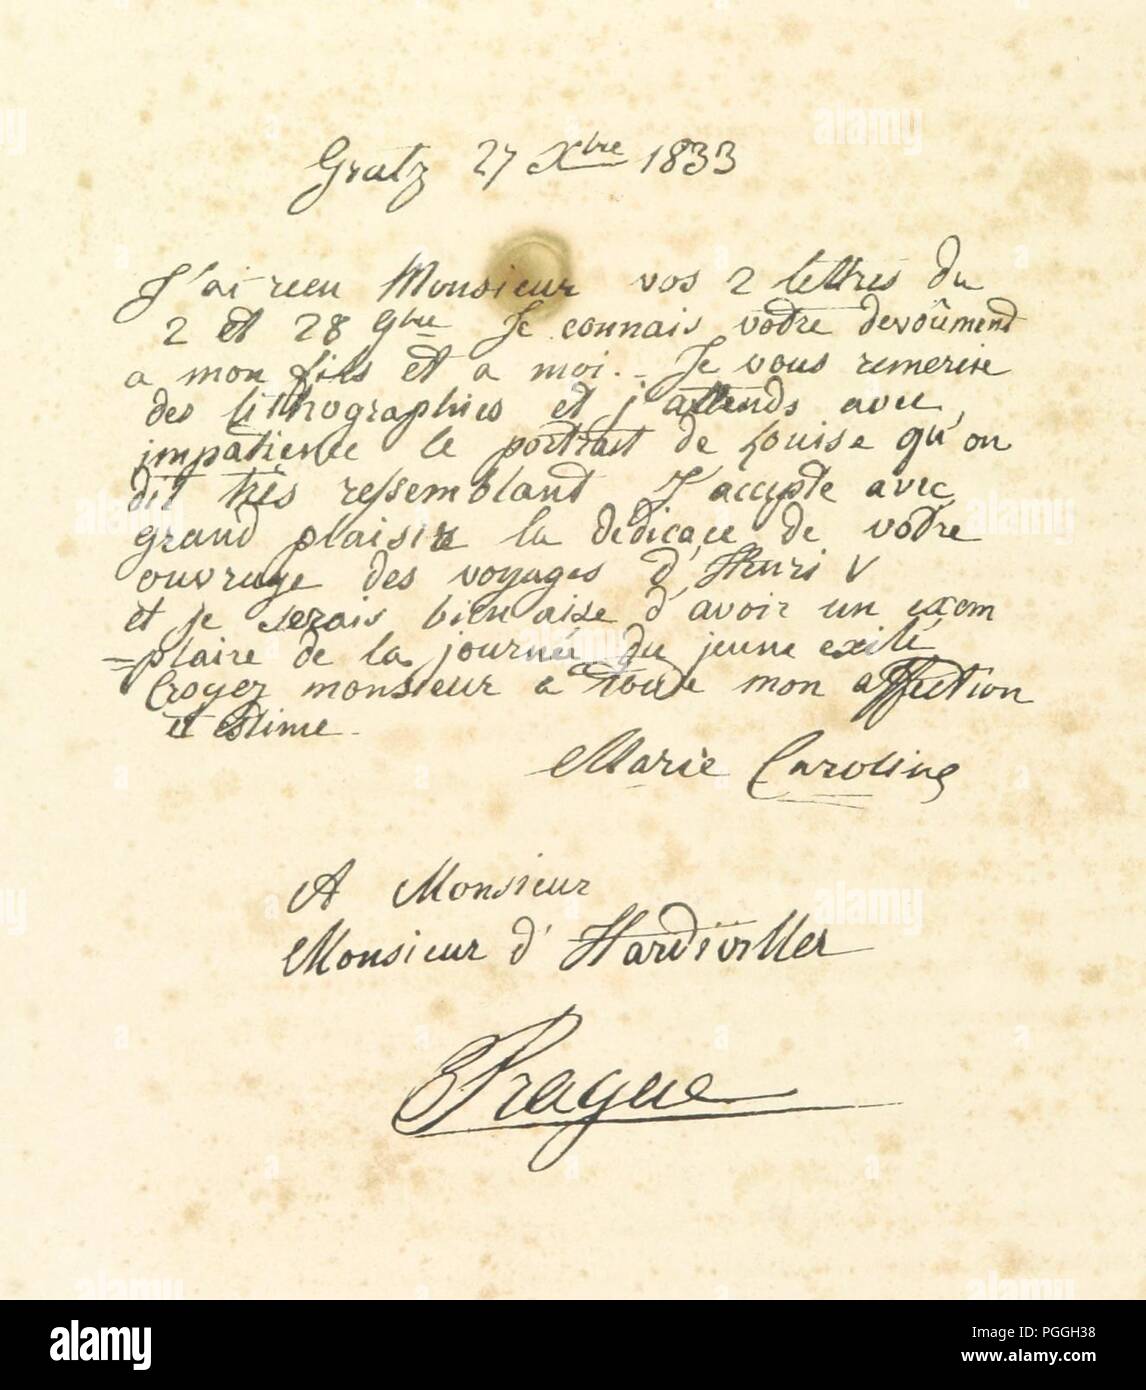 Gratz 27 Xbre 1833
J'ai recu Monsieur vos 2 lettres du
2 et 28 9bre Je connais votre devoûment
a mon fils et a moi. _ Je vous remercie
des lithographies et j'attends avec
impatience le portrait de Louise qu'on
dit très ressemblant J'accepte avec
grand plaisir la dedicace de votre
ouvrage des voyages d'Henri V
et je serais bien aise d'avoir un exem
=plaire de la journée du jeune exilé
Croyez monsieur a toute mon affection
et estime -
Marie Caroline
A Monsieur
Monsieur d'Hardiviller
Prague
alamy
Image ID: PGGH38
www.alamy.com